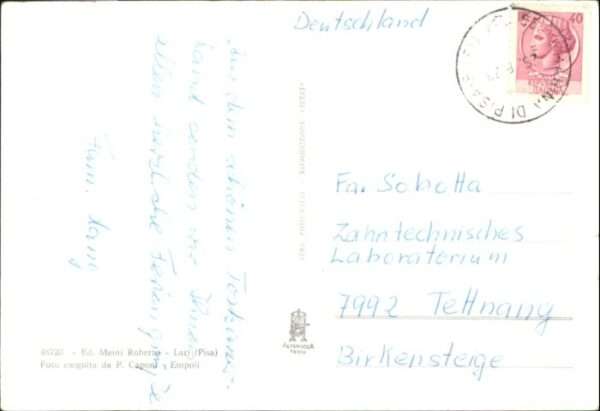 Deutschland
40
DI PISA
Aus dem schönen Toskana-
land senden wir Ihnen
allen herzliche Feriengrüße
Fam. Lang
Fa. Sobotta
Zahntechnisches
Laboratorium
7992 Tettnang
Birkensteige
Ed. Meini Roberto - Lari (Pisa)
Foto eseguita da P. Caponi - Empoli